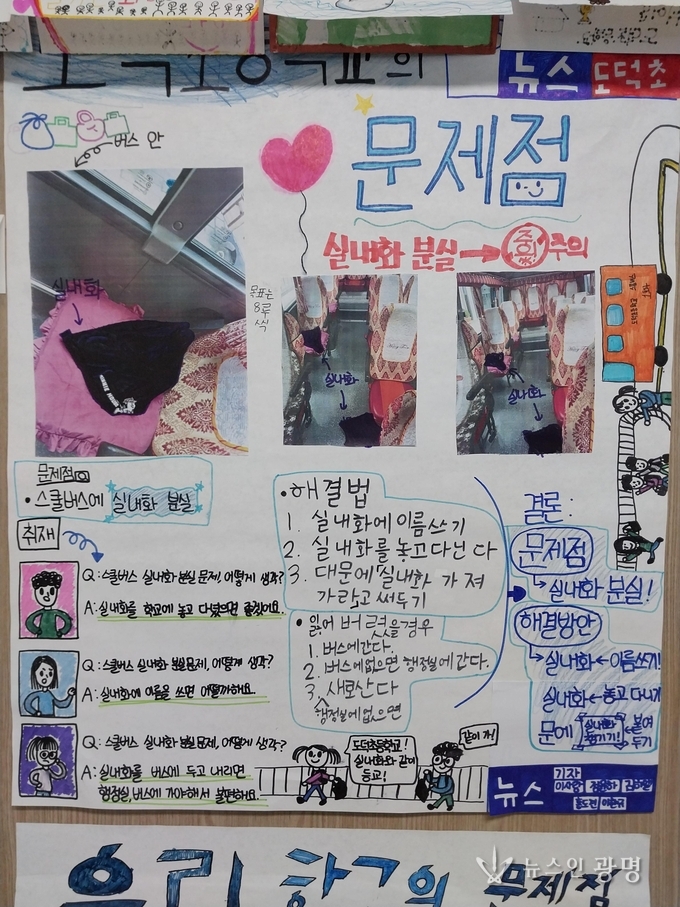 뉴스 도덕초
버스 안
문제점
실내화 분실 → 주의
실내화
실내화
실내화
문제점
• 스쿨버스에 실내화 분실
취재
Q: 스쿨버스 실내화 분실 문제, 어떻게 생각?
A: 실내화를 학교에 놓고 다녔으면 좋겠어요.
Q: 스쿨버스 실내화 분실문제, 어떻게 생각?
A: 실내화에 이름을 쓰면 어떨까해요.
Q: 스쿨버스 실내화 분실문제, 어떻게 생각?
A: 실내화를 버스에 두고 내리면
행정실, 버스에 가야해서 불편해요.
• 해결법
1. 실내화에 이름쓰기
2. 실내화를 놓고다닌다
3. 대문에 실내화 가져
가라고 써두기
• 잃어버렸을경우
1. 버스에간다.
2. 버스에없으면 행정실에간다.
3. 새로산다
행정실에없으면
결론:
문제점
↳ 실내화 분실!
해결방안
↳ 실내화 ← 이름쓰기!
실내화 ← 놓고 다니기
문에 실내화 챙기기! ← 붙여두기
도덕초등학교!
실내화와 같이
등교!
같이 가!
뉴스
기자
우리 학
의 문제점
뉴스인 광명